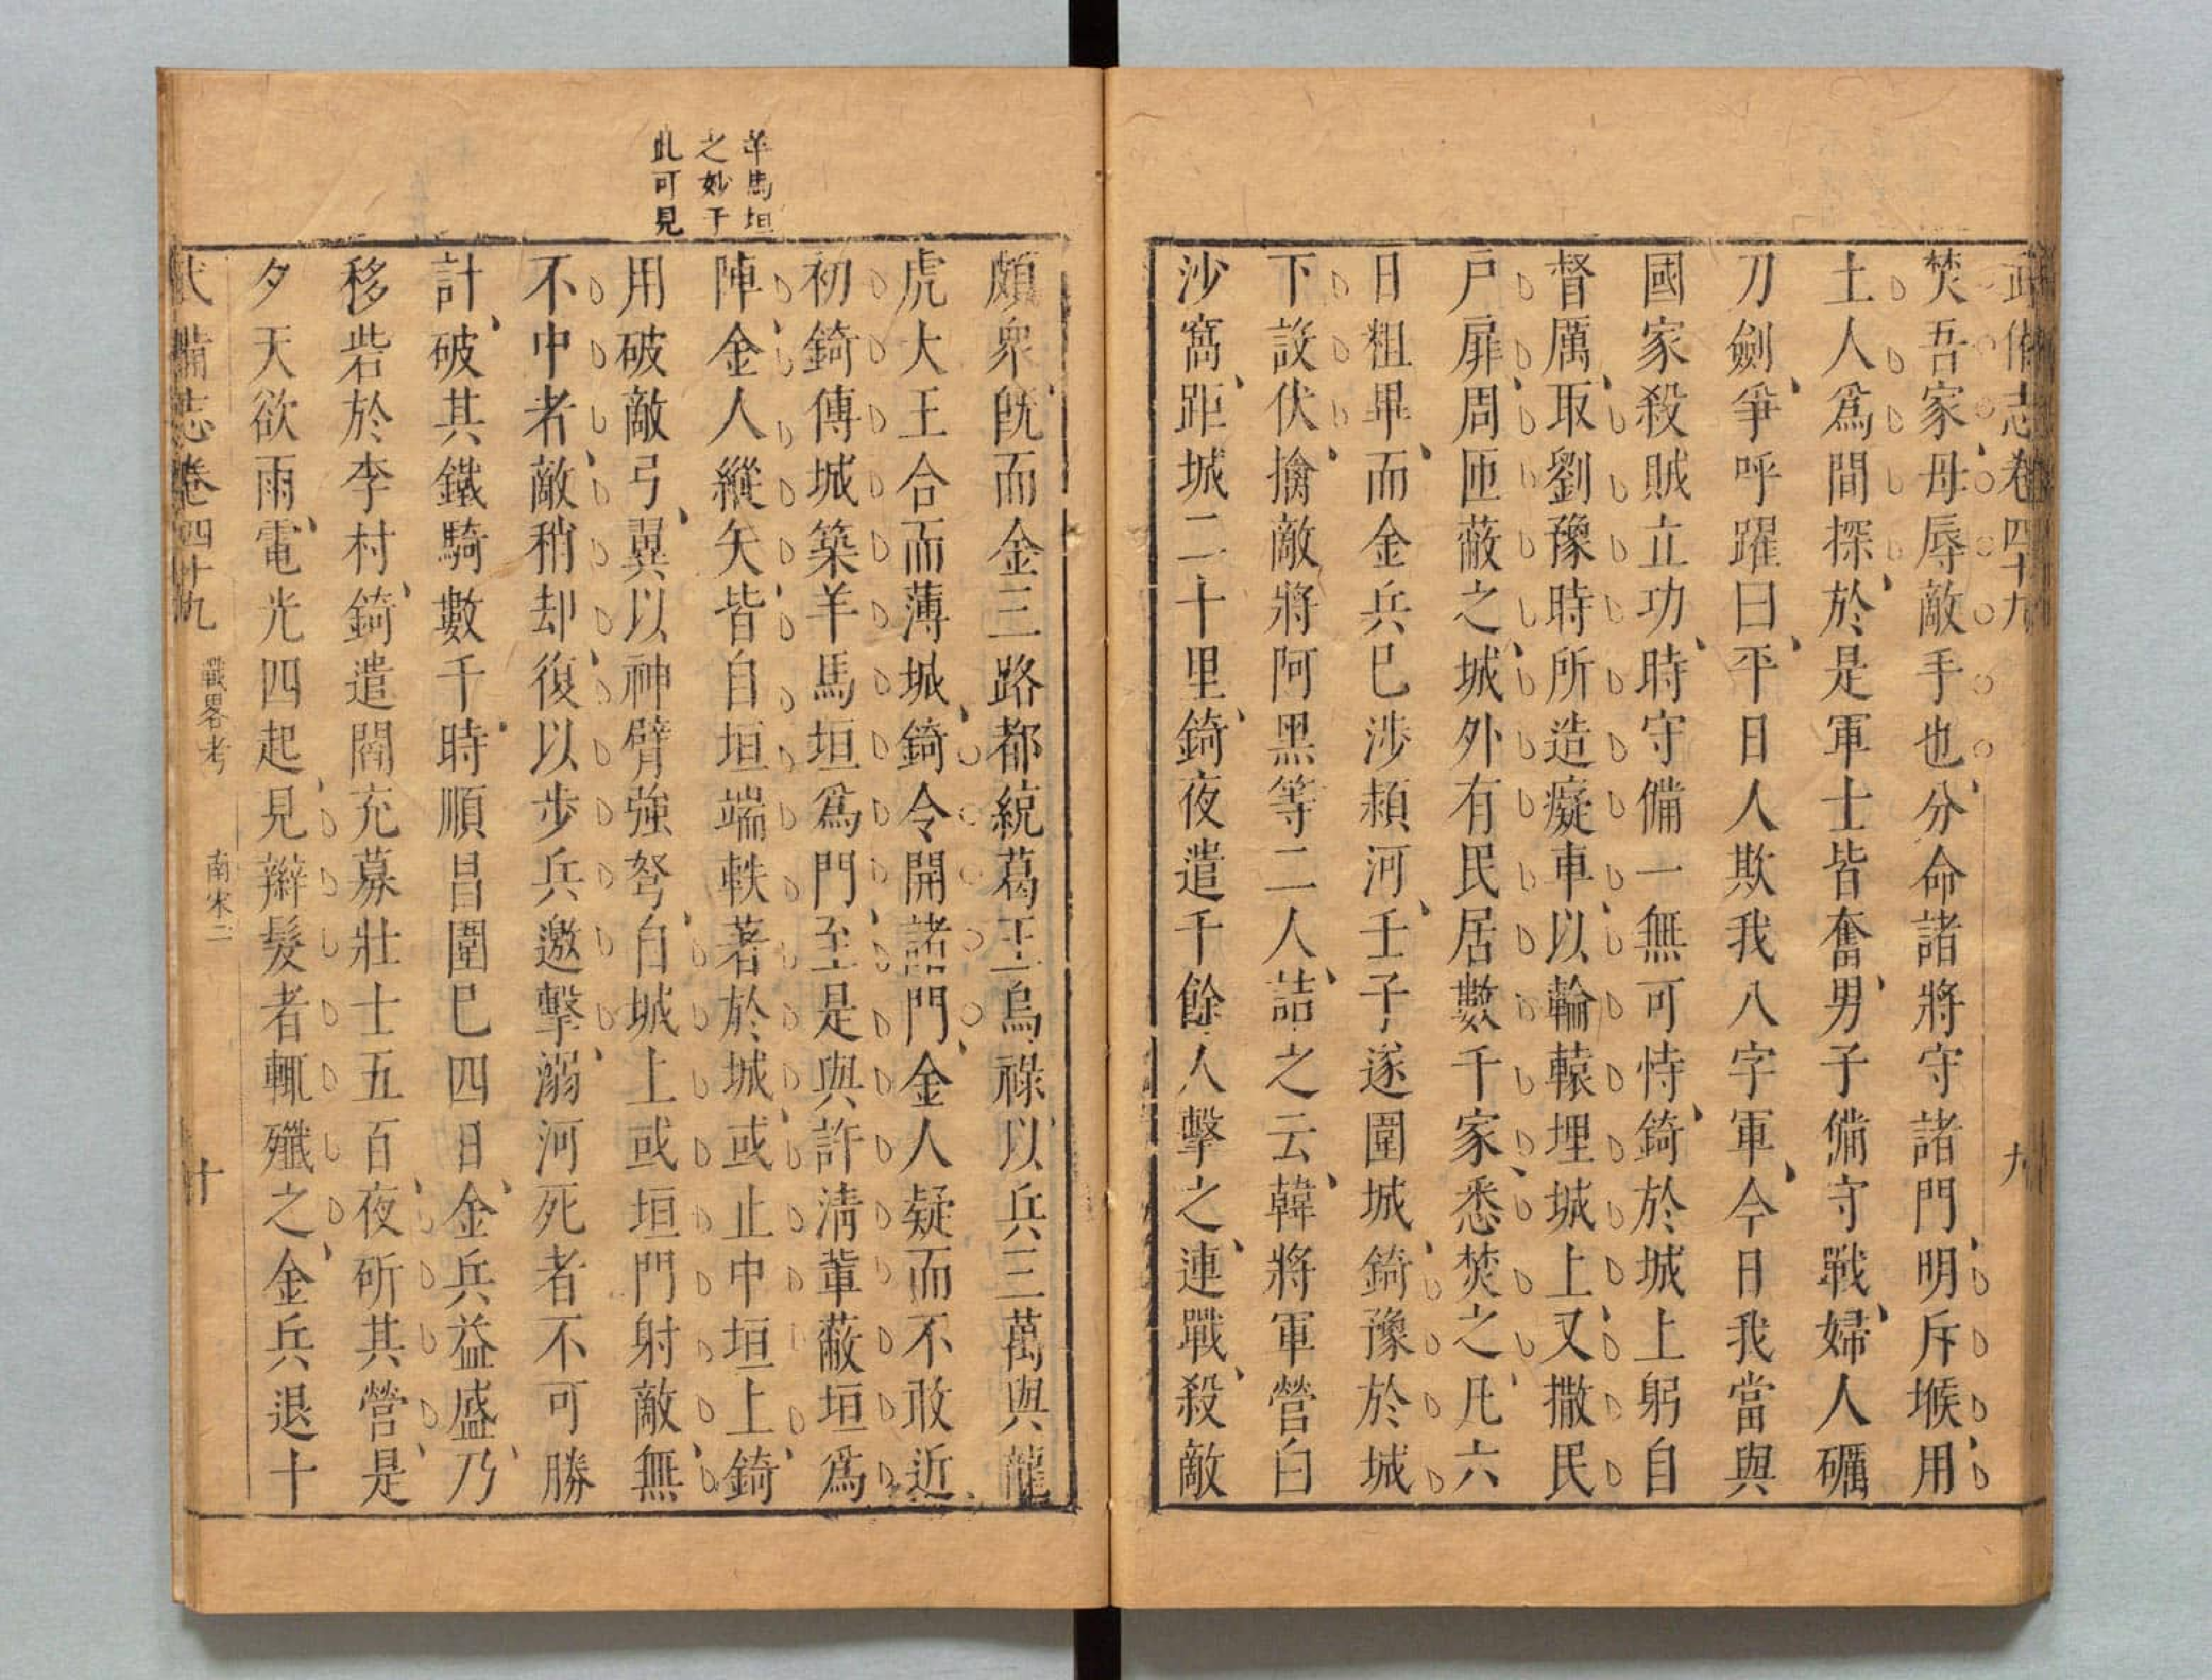 武備志卷四十九
九
焚吾家母辱敵手也分命諸將守諸門明斥堠用
土人爲間探於是軍士皆奮男子備守戰婦人礪
刀劍爭呼躍曰平日人欺我八字軍今日我當與
國家殺賊立功時守備一無可恃錡於城上躬自
督厲取劉豫時所造癡車以輪轅埋城上又撒民
戸扉周匝蔽之城外有民居數千家悉焚之凡六
日粗畢而金兵巳涉潁河壬子遂圍城錡豫於城
下設伏擒敵將阿黑等二人詰之云韓將軍營白
沙窩距城二十里錡夜遣千餘人擊之連戰殺敵
羊馬垣
之妙于
此可見
頗衆旣而金三路都統葛王烏祿以兵三萬與龍
虎大王合而薄城錡令開諸門金人疑而不敢近
初錡傳城築羊馬垣爲門至是與許淸輩蔽垣爲
陣金人縱矢皆自垣端軼著於城或止中垣上錡
用破敵弓翼以神臂強弩自城上或垣門射敵無
不中者敵稍却復以步兵邀擊溺河死者不可勝
計破其鐵騎數千時順昌圍巳四日金兵益盛乃
移砦於李村錡遣閻充募壯士五百夜斫其營是
夕天欲雨電光四起見辮髮者輒殲之金兵退十
武備志卷四十九 戰畧考 南宋二
十